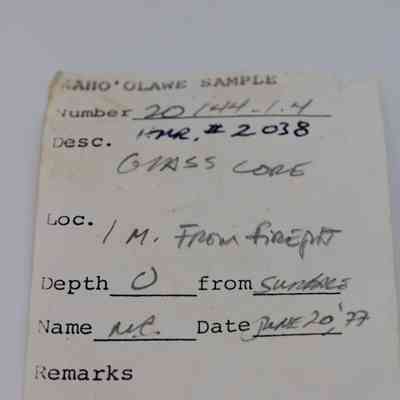 KAHO'OLAWE SAMPLE
Number 20/44-1.4
HMR. # 2038
Desc.
GLASS CORE
Loc.
1 M. From firepit
Depth 0 from SURFACE
Name Date JUNE 20, '77
Remarks